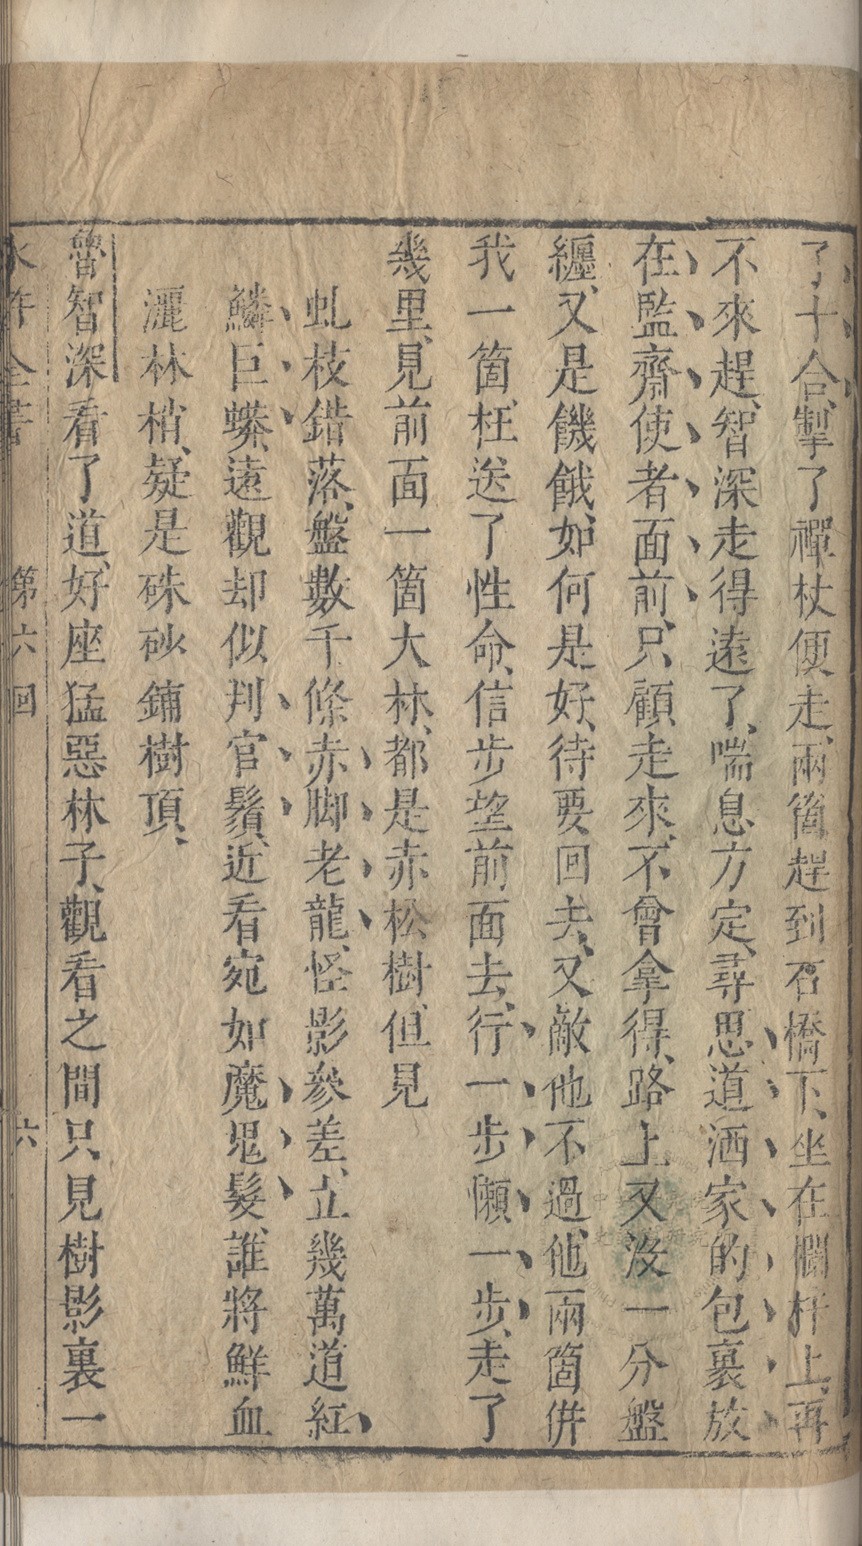 了十合、掣了禪杖便走、兩箇趕到石橋下、坐在欄杆上、再
不來趕、智深走得遠了、喘息方定、尋思道洒家的包裹放
在監齋使者面前、只顧走來、不曾拿得、路上又沒一分盤
纏、又是饑餓、如何是好、待要回去、又敵他不過、他兩箇併
我一箇、枉送了性命、信步望前面去、行一步懶一步、走了
幾里、見前面一箇大林、都是赤松樹、但見
虬枝錯落、盤數千條赤脚老龍、怪影參差、立幾萬道紅
鱗巨蟒、遠觀却似判官鬚、近看宛如魔鬼髮、誰將鮮血
灑林梢、疑是硃砂鋪樹頂、
魯智深看了道、好座猛惡林子、觀看之間只見樹影裏一
水滸全書 第六回 六